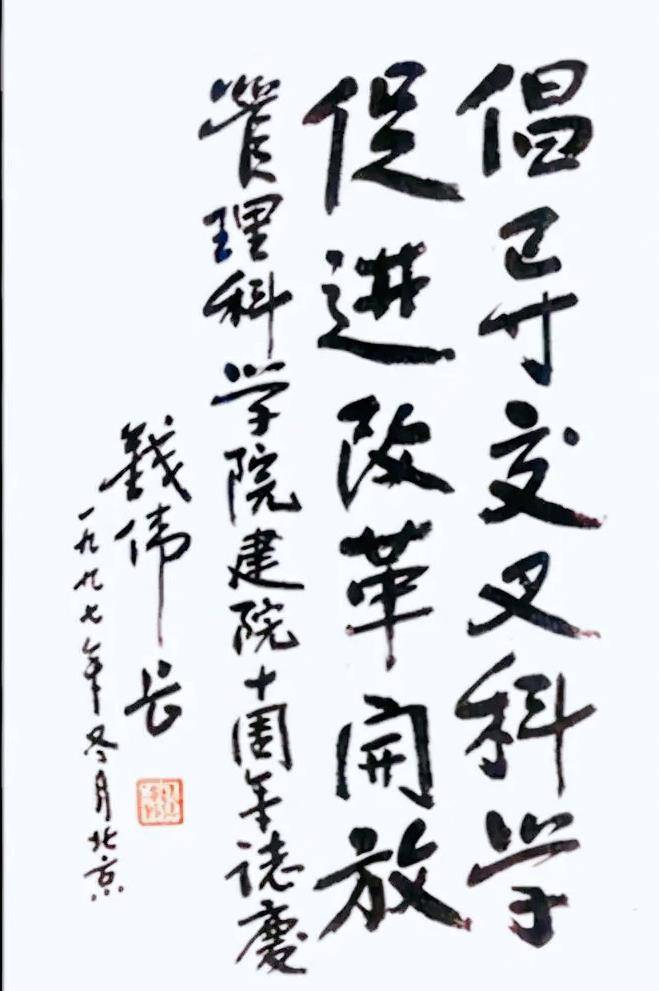 倡导交叉科学
促进改革開放
管理科学院建院十周年誌慶
钱伟长
一九九七年冬月北京